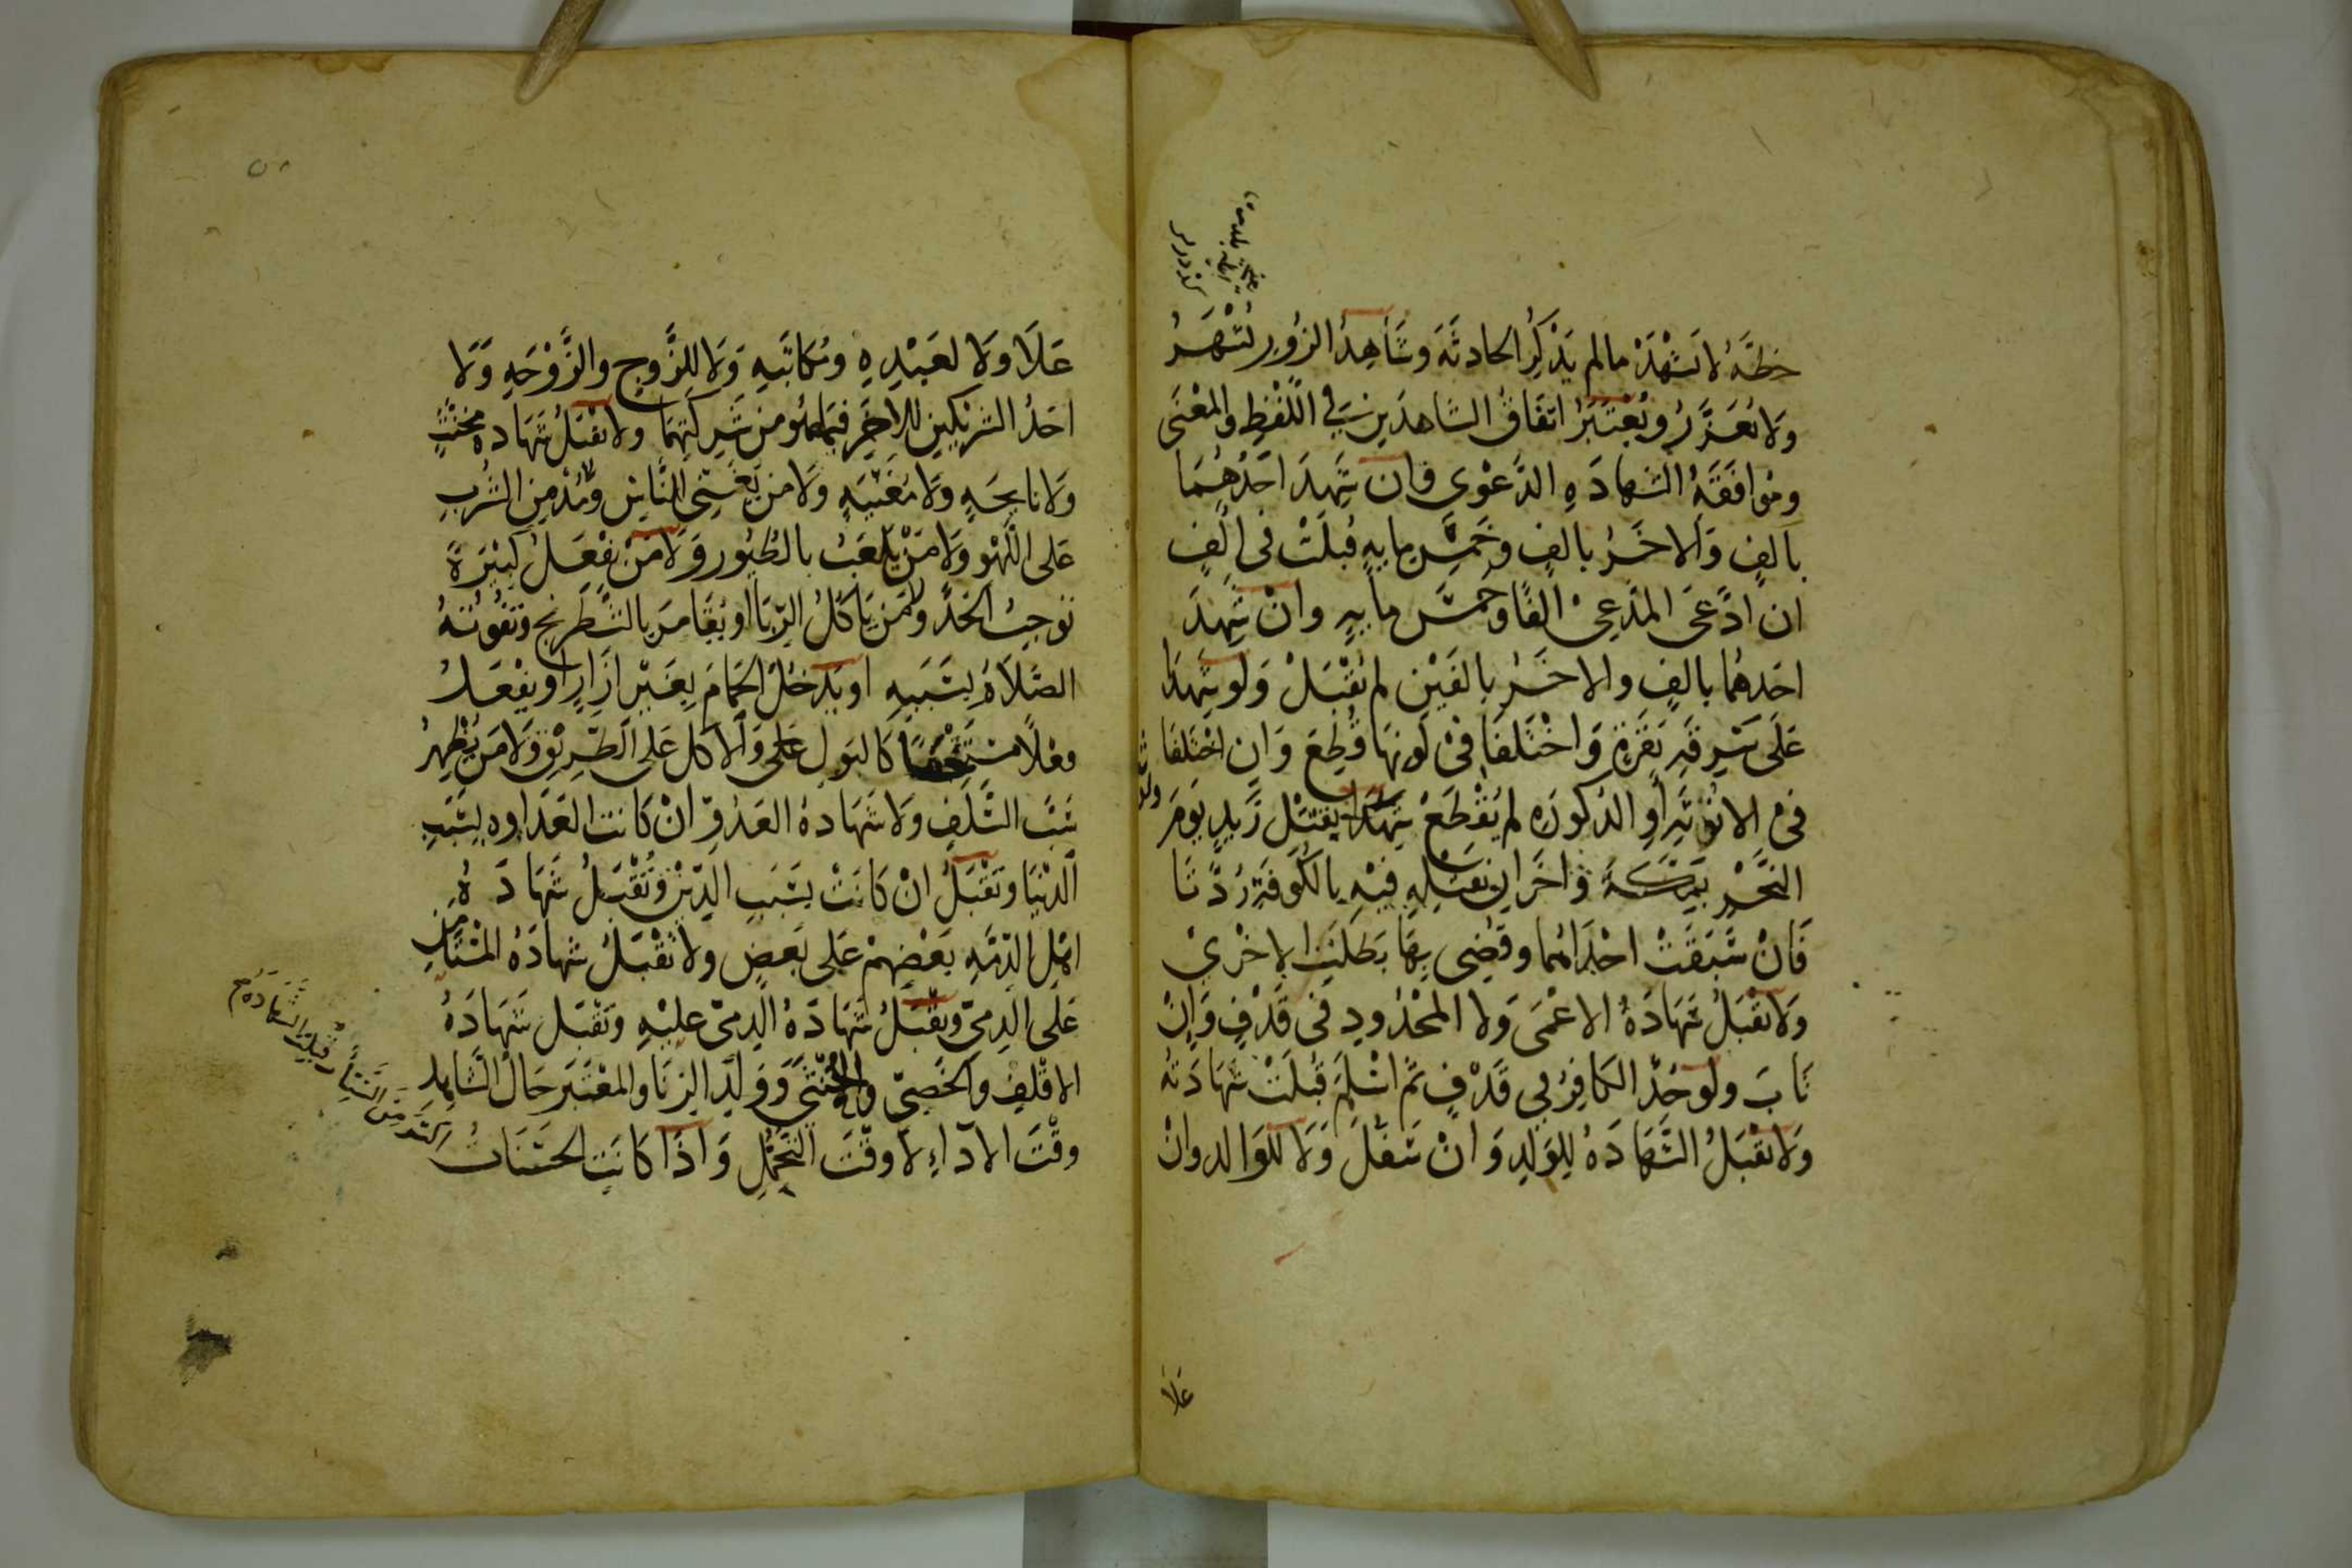 خطَّهُ لا تَشْهَدْ مالم يَذْكُرِ الحادثَةَ وشَاهِدُ الزُورِ يُشْهَرُ
وَلا يُعَزَّرُ وَيُعْتَبَرُ اتفَاقُ الشاهدَينِ في اللّفْظِ والمعْنَى
ومُوافَقَةُ الشهادَةِ الدَّعْوى فان شَهِدَ احَدُهُمَا
بالفٍ وَالاخَرُ بالفٍ وخَمْسِ مايهٍ قُبلَتْ فى الفٍ
ان ادَّعَى المدّعِىْ الفًا وخمْسَ مايهٍ وانْ شَهِدَ
احَدهُما بالفٍ والاخَرُ بالفَيْنِ لم تُقْبَلْ وَلو شَهِدَا
عَلَى سَرِقَةِ بَقَرَةٍ وَاخْتَلفَا فىْ لَونِهَا قُطِعَ وَانِ اخْتَلفَا
فى الانُوثَةِ أوِ الذكورَهِ لم يُقْطَعْ شهدا بقتلِ زَيدٍ يَومَ
النَّحْرِ بمَكَّةَ وَاخَرانِ بقتلِهِ فيْهِ بِالكُوفَةِ رُدَّتَا
فَانْ سَبَقَتْ احْدَاهُما وقضِى بِهَا بَطلَتِ الاخْرىْ
وَلا تُقْبَلُ شَهَادَةُ الاعْمَى وَلا المحْدُودِ فى قَذْفٍ وَاِنْ
تَابَ ولَو حُدَّ الكافِرُ في قَذْفٍ ثُمَّ اسْلَمَ قُبلَتْ شهَادَتُه
وَلا تُقْبَلُ الشَّهَادَةُ للوَلدِ وَانْ سَفَلَ وَلا للوَالد وانْ
عَلا
عَلَا وَلا لعَبْدِهِ ومُكَاتَبِهِ وَلا للزَّوجِ والزَّوْجَهِ وَلا
احَدُ الشرِيْكينِ للاخَرِ فيما هُو من شركَتِهمَا ولا تُقْبَلُ شَهَادةُ مخنثٍ
وَلا نايحَهٍ وَلا مُغَنّيَهٍ وَلا من يُغَنِّى للنَّاسِ ولا مُدْمِنِ الشُّرْبِ
عَلى اللّهْو وَلا مَنْ يَلعَبُ بالطُيُور وَلا مَنْ يَفْعَلُ كَبْيرَةً
تُوجِبُ الحَدَّ ولا مَن يَأكُلُ الرّبَا أو يُقَامر بِالشَّطرَنجِ وتفُوتُهُ
الصَّلاةُ بِسَببِهِ او يَدخُلُ الحَمَّامَ بِغَيْرِ اِزَارٍ او يَفْعَلُ
فعْلاً مستخفًا كالبَولِ عَلى وَالاكل عَلى الطَّريْقِ وَلا مَن يُظهِرُ
سَبَّ السَّلَفِ وَلا شَهَادةُ العَدُوّ انْ كَانَتِ العَدَاوه بِسَبَبِ
الدّنيَا وتُقْبَلُ انْ كَانَتْ بسَبَبِ الدِّيْنِ وَتُقْبَلُ شَهَادَةُ
اهْلِ الذِّمَّهِ بَعْضِهِمْ عَلى بَعضٍ ولا تُقْبَلُ شهادَةُ المسْتَأمَنِ
عَلَى الذِمىّ وتُقْبَلُ شهَادَةُ الذِمىّ عليْهِ وتُقْبَل شَهَادَةُ
الاقْلفِ والخَصِىّ والخُنثَى وَوَلَدِ الزِنَا والمعْتَبَر حَالُ الشَّاهِدِ
وقْتَ الادَاءِ لا وقْتَ التَّحَمُّلِ وَاذَا كانَتِ الحَسَنَاتُ
اكثر من السَيّئَاتِ قُبِلتِ الشَّهَادَةُ